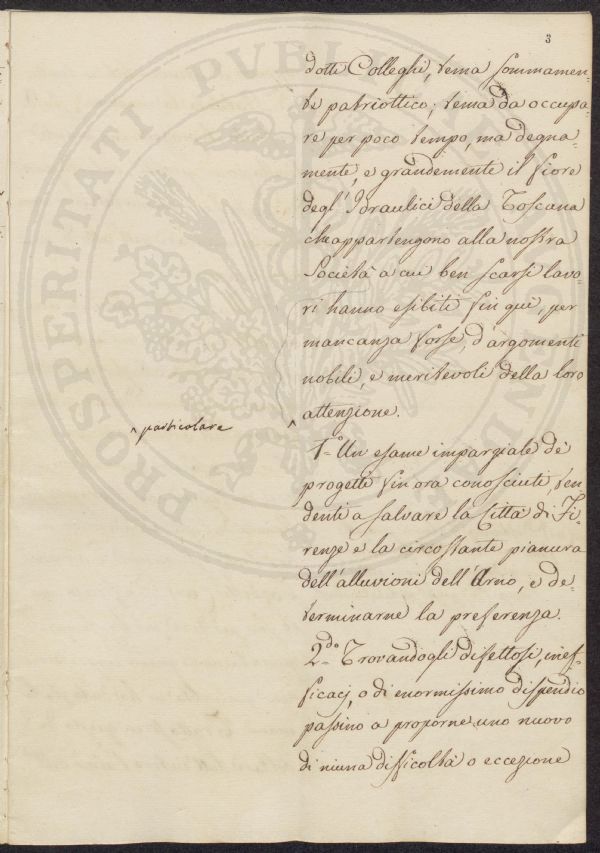 3
dotti Colleghi, tema sommamen=
te patriottico; tema da occupa=
re per poco tempo, ma degna=
mente, e grandemente il fiore
degl' Idraulici della Toscana
che appartengono alla nostra
Società a cui ben scarsi lavo=
ri hanno esibiti fin qui, per
mancanza forse, d'argomenti
nobili, e meritevoli della loro
^ particolare
^
attenzione.
1.º Un esame imparziale de'
progetti fin ora conosciuti, ten
denti a salvare la Città di Fi=
renze e la circostante pianura
dell'alluvioni dell'Arno, e de=
terminarne la preferenza.
2.do Trovandogli difettosi, inef=
ficacj, o di enormissimo dispendio
passino a proporne uno nuovo
di niuna difficoltà o eccezione
PROSPERITATI PVBLICAE AVGENDAE